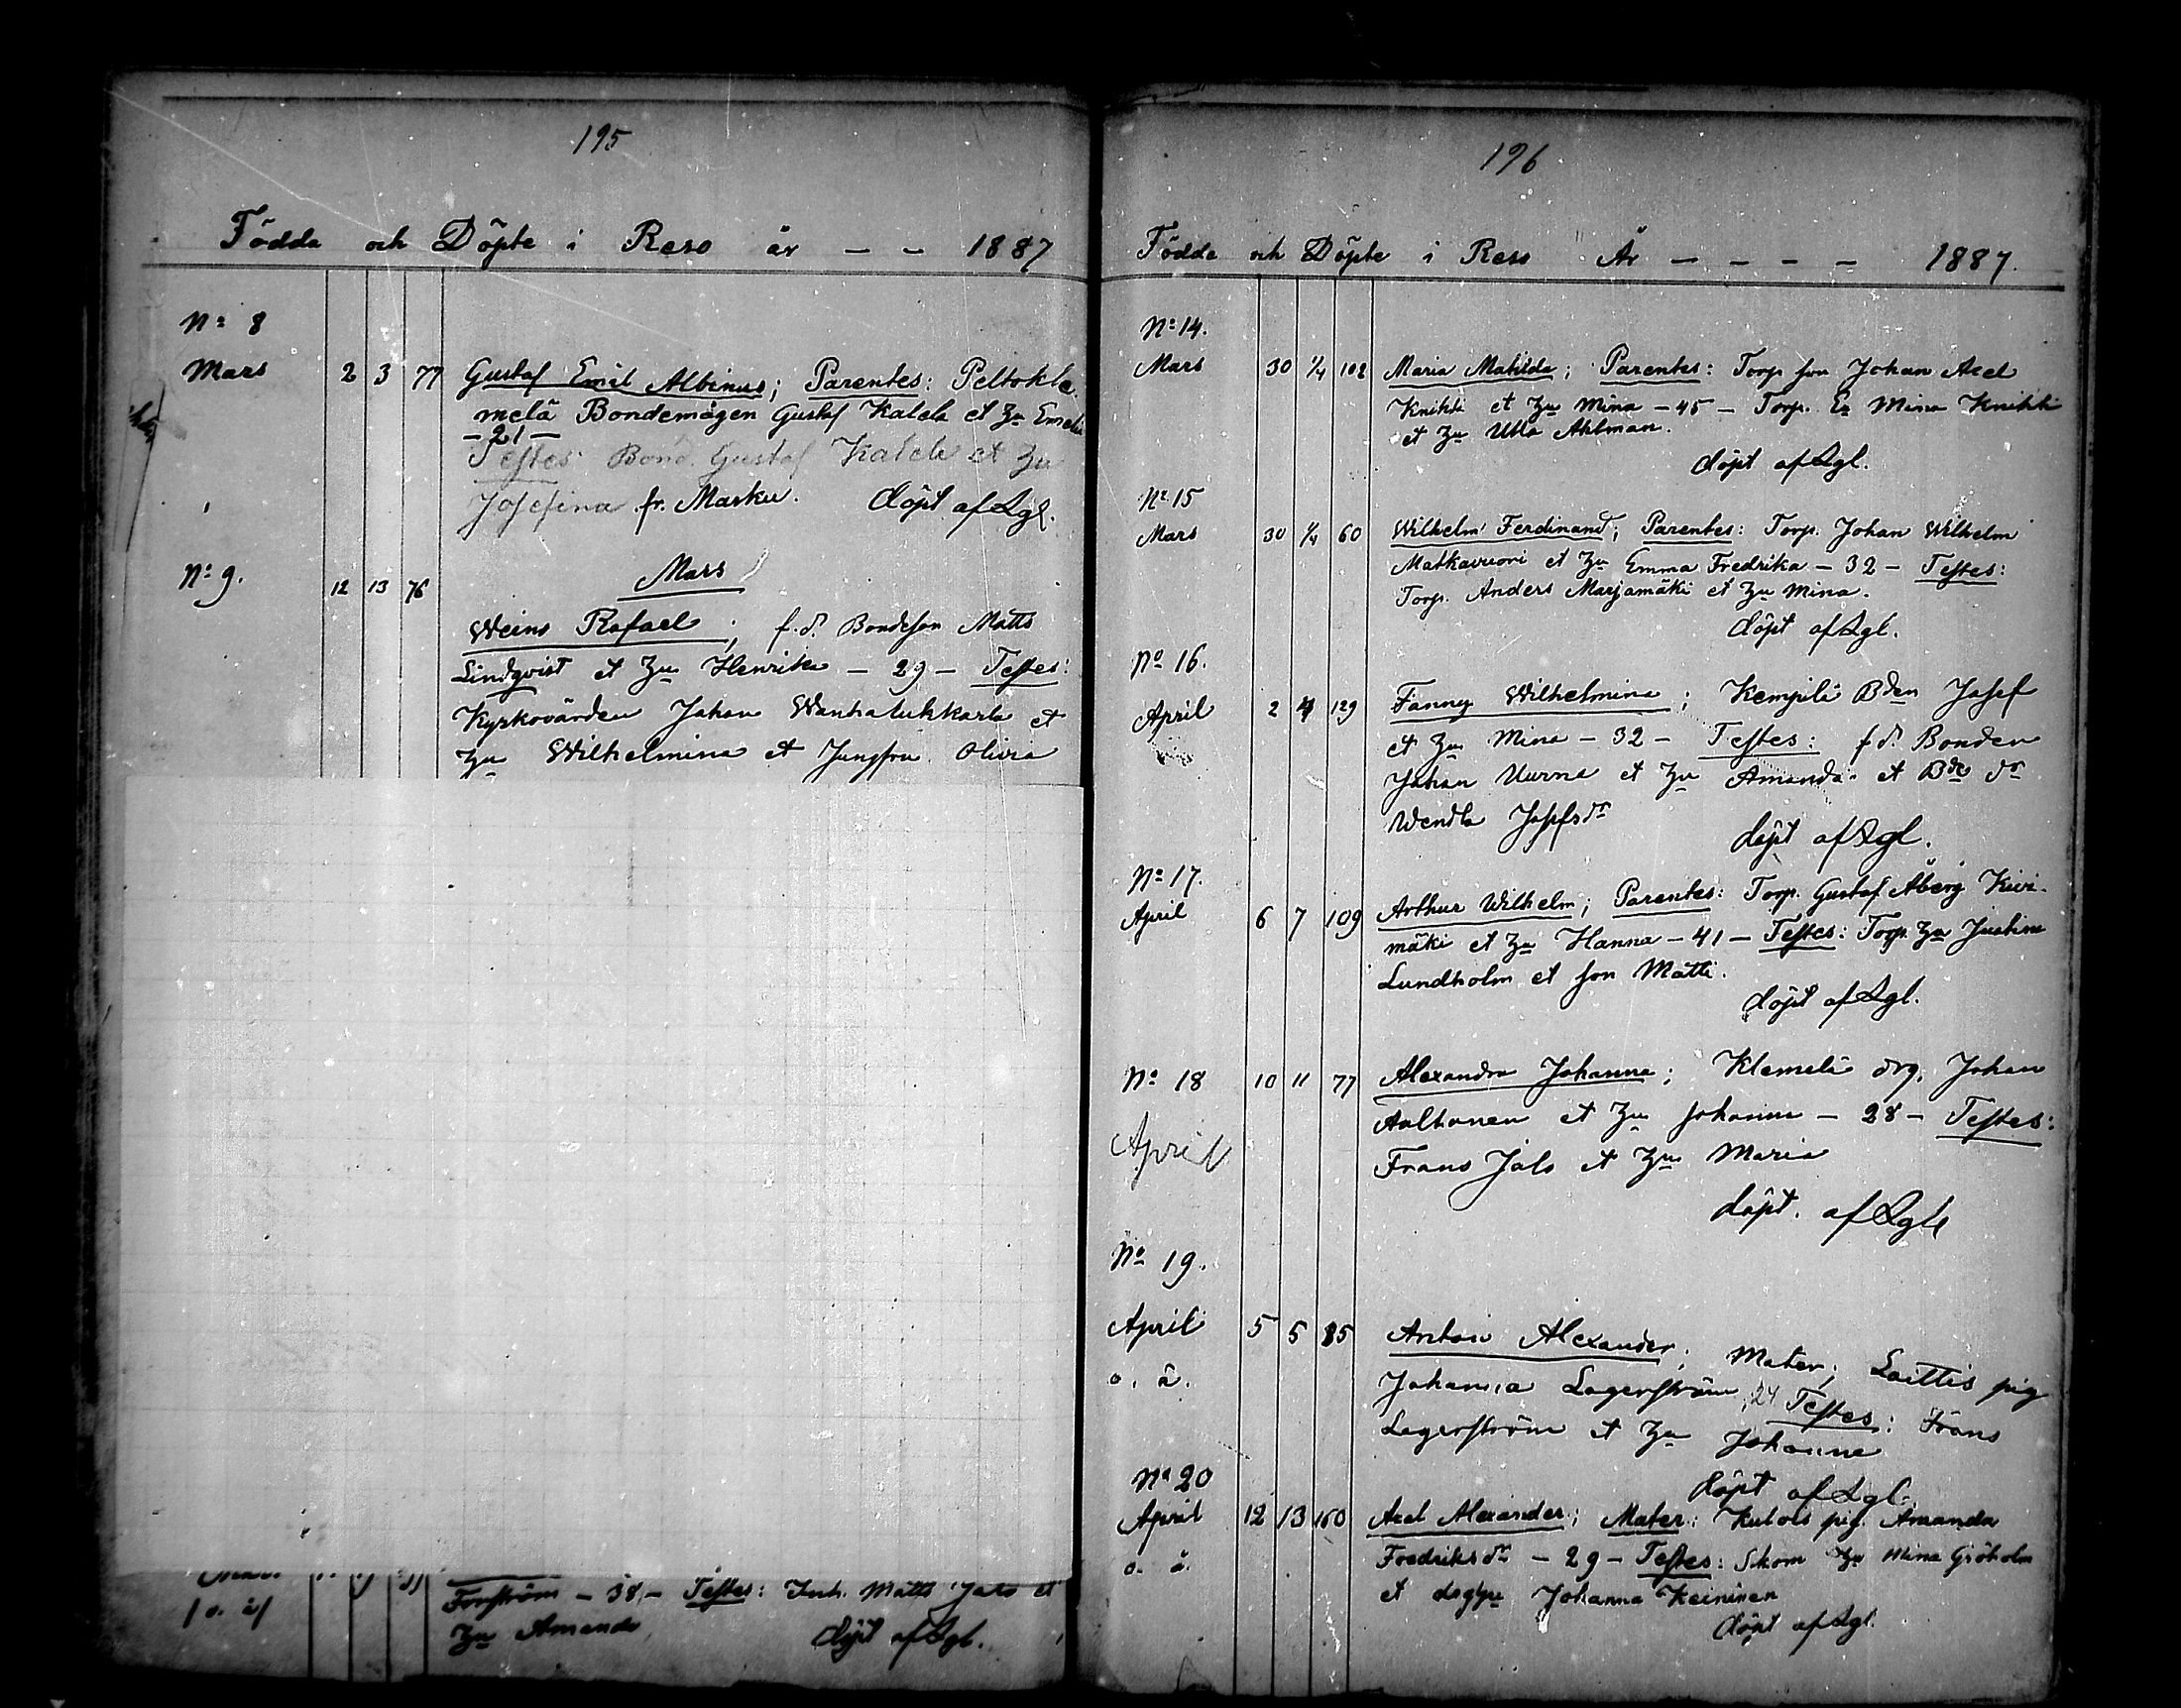 195
Födda och Döpte i Reso år – – 1887
No 8
Mars 2 3 77 Gustaf Emil Albinus; Parentes: Peltokle-
melä Bondemågen Gustaf Katela et Zu Emelie
– 21 –
Testes Bond. Gustaf Katela et Zu
Josefina fr. Masku. döpt af Lgl.
No 9. 12 13 76 Mars
Weino Rafael; f.d. Bondeson Matts
Lindqvist et Zu Henrika – 29 – Testes:
Kyrkovärden Johan Wanhatukkarla et
Zu Wilhelmina et Jungfru Olivia
Forström – 38 – Testes: Inh. Matts Jalo et
/o. ä/ Zu Amanda
döpt af Lgl.
196
Födda och Döpte i Reso År – – – – 1887.
No 14.
Mars 30 1/4 102 Maria Matilda; Parentes: Torp. son Johan Axel
Knihti et Zu Mina – 45 – Torp. Ea Mina Knihti
et Zu Ulla Ahlman.
döpt af Lgl.
No 15
Mars 30 1/4 60 Wilhelm Ferdinand; Parentes: Torp. Johan Wilhelm
Matkavuori et Zu Emma Fredrika – 32 – Testes:
Torp. Anders Marjamäki et Zu Mina.
döpt af Lgl.
No 16.
April 2 4 129 Fanny Wilhelmina; Kempilä Bden Josef
et Zu Mina – 32 – Testes: f.d. Bonden
Johan Uurna et Zu Amanda et Bde dr
Wendla Josefsdr
döpt af Lgl.
No 17.
April 6 7 109 Arthur Wilhelm; Parentes: Torp. Gustaf Åberg Kivi-
mäki et Zu Hanna – 41 – Testes: Torp. Za Justina
Lundholm et son Matti.
döpt af Lgl.
No 18 10 11 77 Alexandra Johanna; Klemelä drg. Johan
April Aaltonen et Zu Johanna – 28 – Testes:
Frans Jalo et Zu Maria
döpt. af Lgl
No 19.
April 5 5 85 Anton Alexander; Mater; Laittis pig
o. ä. Johanna Lagerström, 24 Testes: Frans
Lagerström et Zu Johanna
döpt af Lgl.
No 20
April 12 13 160 Axel Alexander; Mater: Kulois pig. Amanda
o. ä. Fredriksdr – 29 – Testes: Skom Zu Mina Gröholm
et Johanna Keininen
döpt af Lgl.